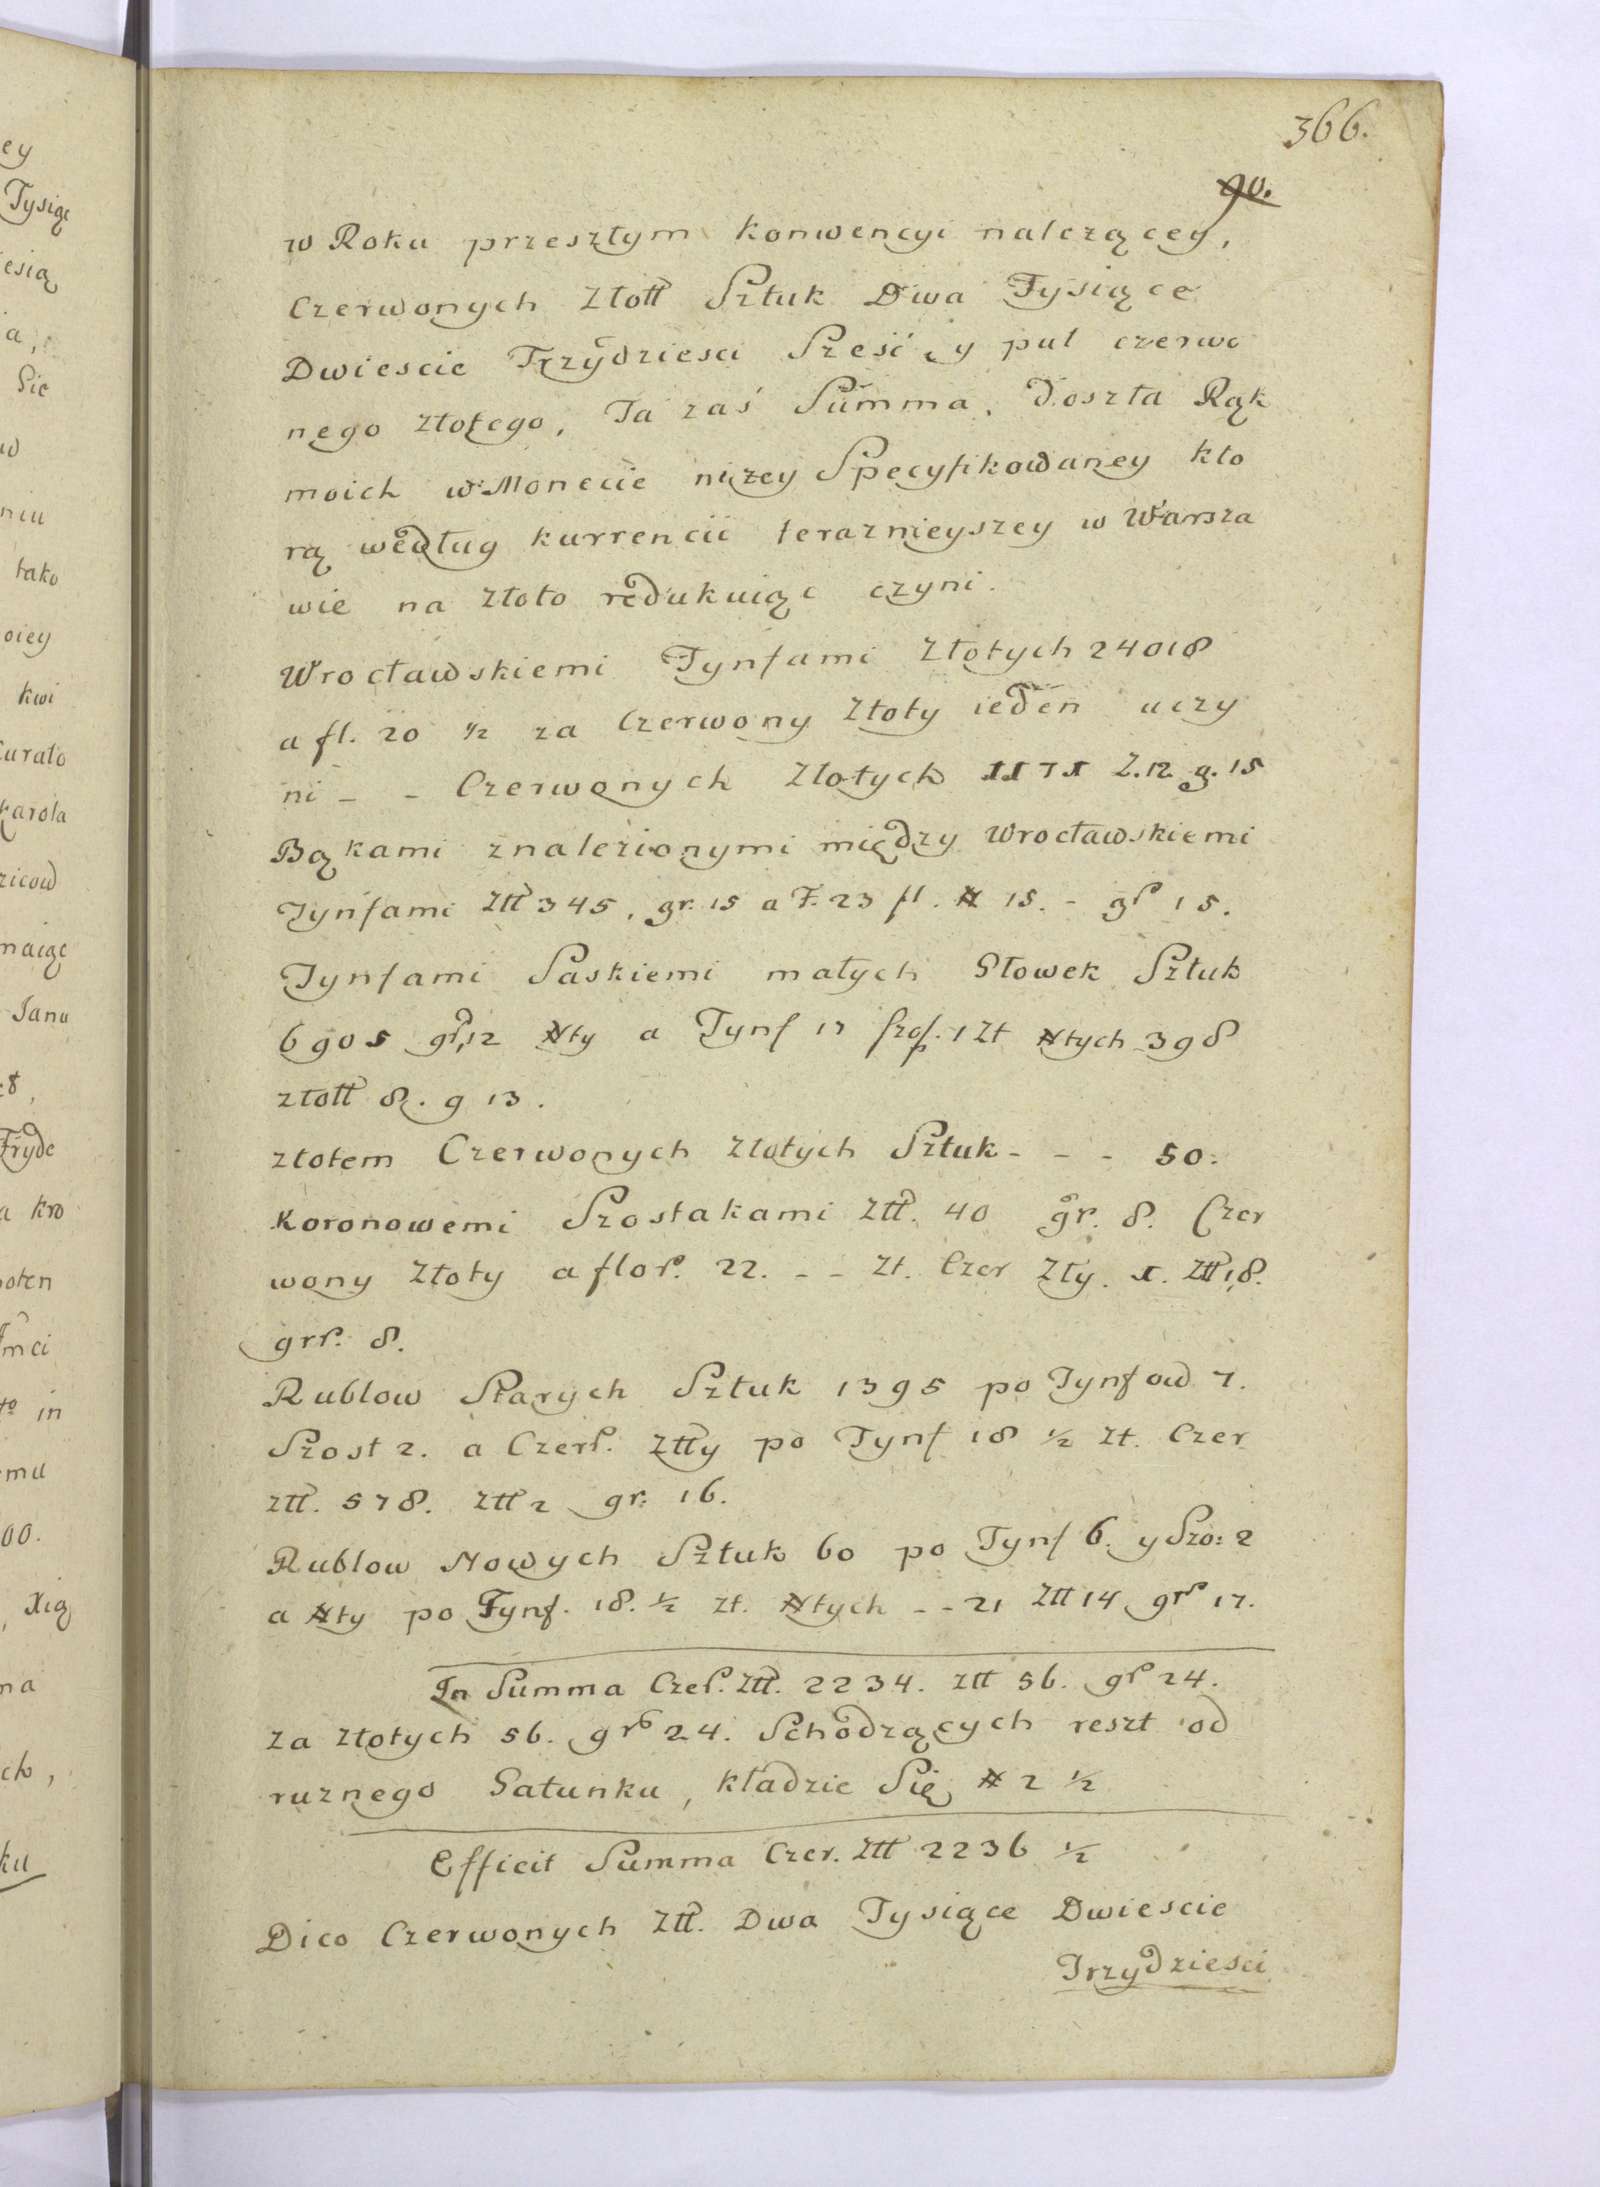 366.
90.
w Roku przeszłym konwencyi nalezącey,
Czerwonych Złott Sztuk Dwa Tysiące
Dwiescie Trzydziesci Sześć y puł czerwo
nego złotego, Ta zaś Summa, doszła Rąk
moich w Monecie niżey Specyfikowaney kto
rą według kurrencii teraznieyszey w Warsza
wie na złoto redukuiąc czyni.
Wrocławskiemi Tynfami Złotych 24018
a fl. 20 ½ za Czerwony Złoty ieden uczy
ni - - Czerwonych Złotych 1171 Z. 12. g. 15
Bąkami znalezionymi między Wrocławskiemi
Tynfami Ztt 345, gr. 15 a F. 23 fl. # 15. - gr 15.
Tynfami Saskiemi małych Głowek Sztuk
6905 gr 12 #ty a Tynf 17 szos. 1 Zt #tych 398
złott 8. g 13.
złotem Czerwonych Złotych Sztuk - - - 50.
Koronowemi Szostakami Ztt. 40 gr. 8. Czer
wony Złoty a flor. 22. - - Zt. Czer Zły. 1. Ztt 18.
grr. 8.
Rublow Starych Sztuk 1395 po Tynfow 7.
Szost 2. a Czer. Ztty po Tynf 18 ½ Zt. Czer
Ztt. 578. Ztt 2 gr. 16.
Rublow Nowych Sztuk 60 po Tynf 6. y Szo: 2
a #ty po Tynf. 18. ½ Zt. #tych - - 21 Ztt 14 gr 17.
In Summa Czer. Ztt. 2234. Ztt 56. gr 24.
za złotych 56. gr 24. Schodzących reszt od
ruznego Gatunku, kładzie Się # 2 ½
Efficit Summa Czer. Ztt 2236 ½
Dico Czerwonych Ztt. Dwa Tysiące Dwiescie
Trzydziesci